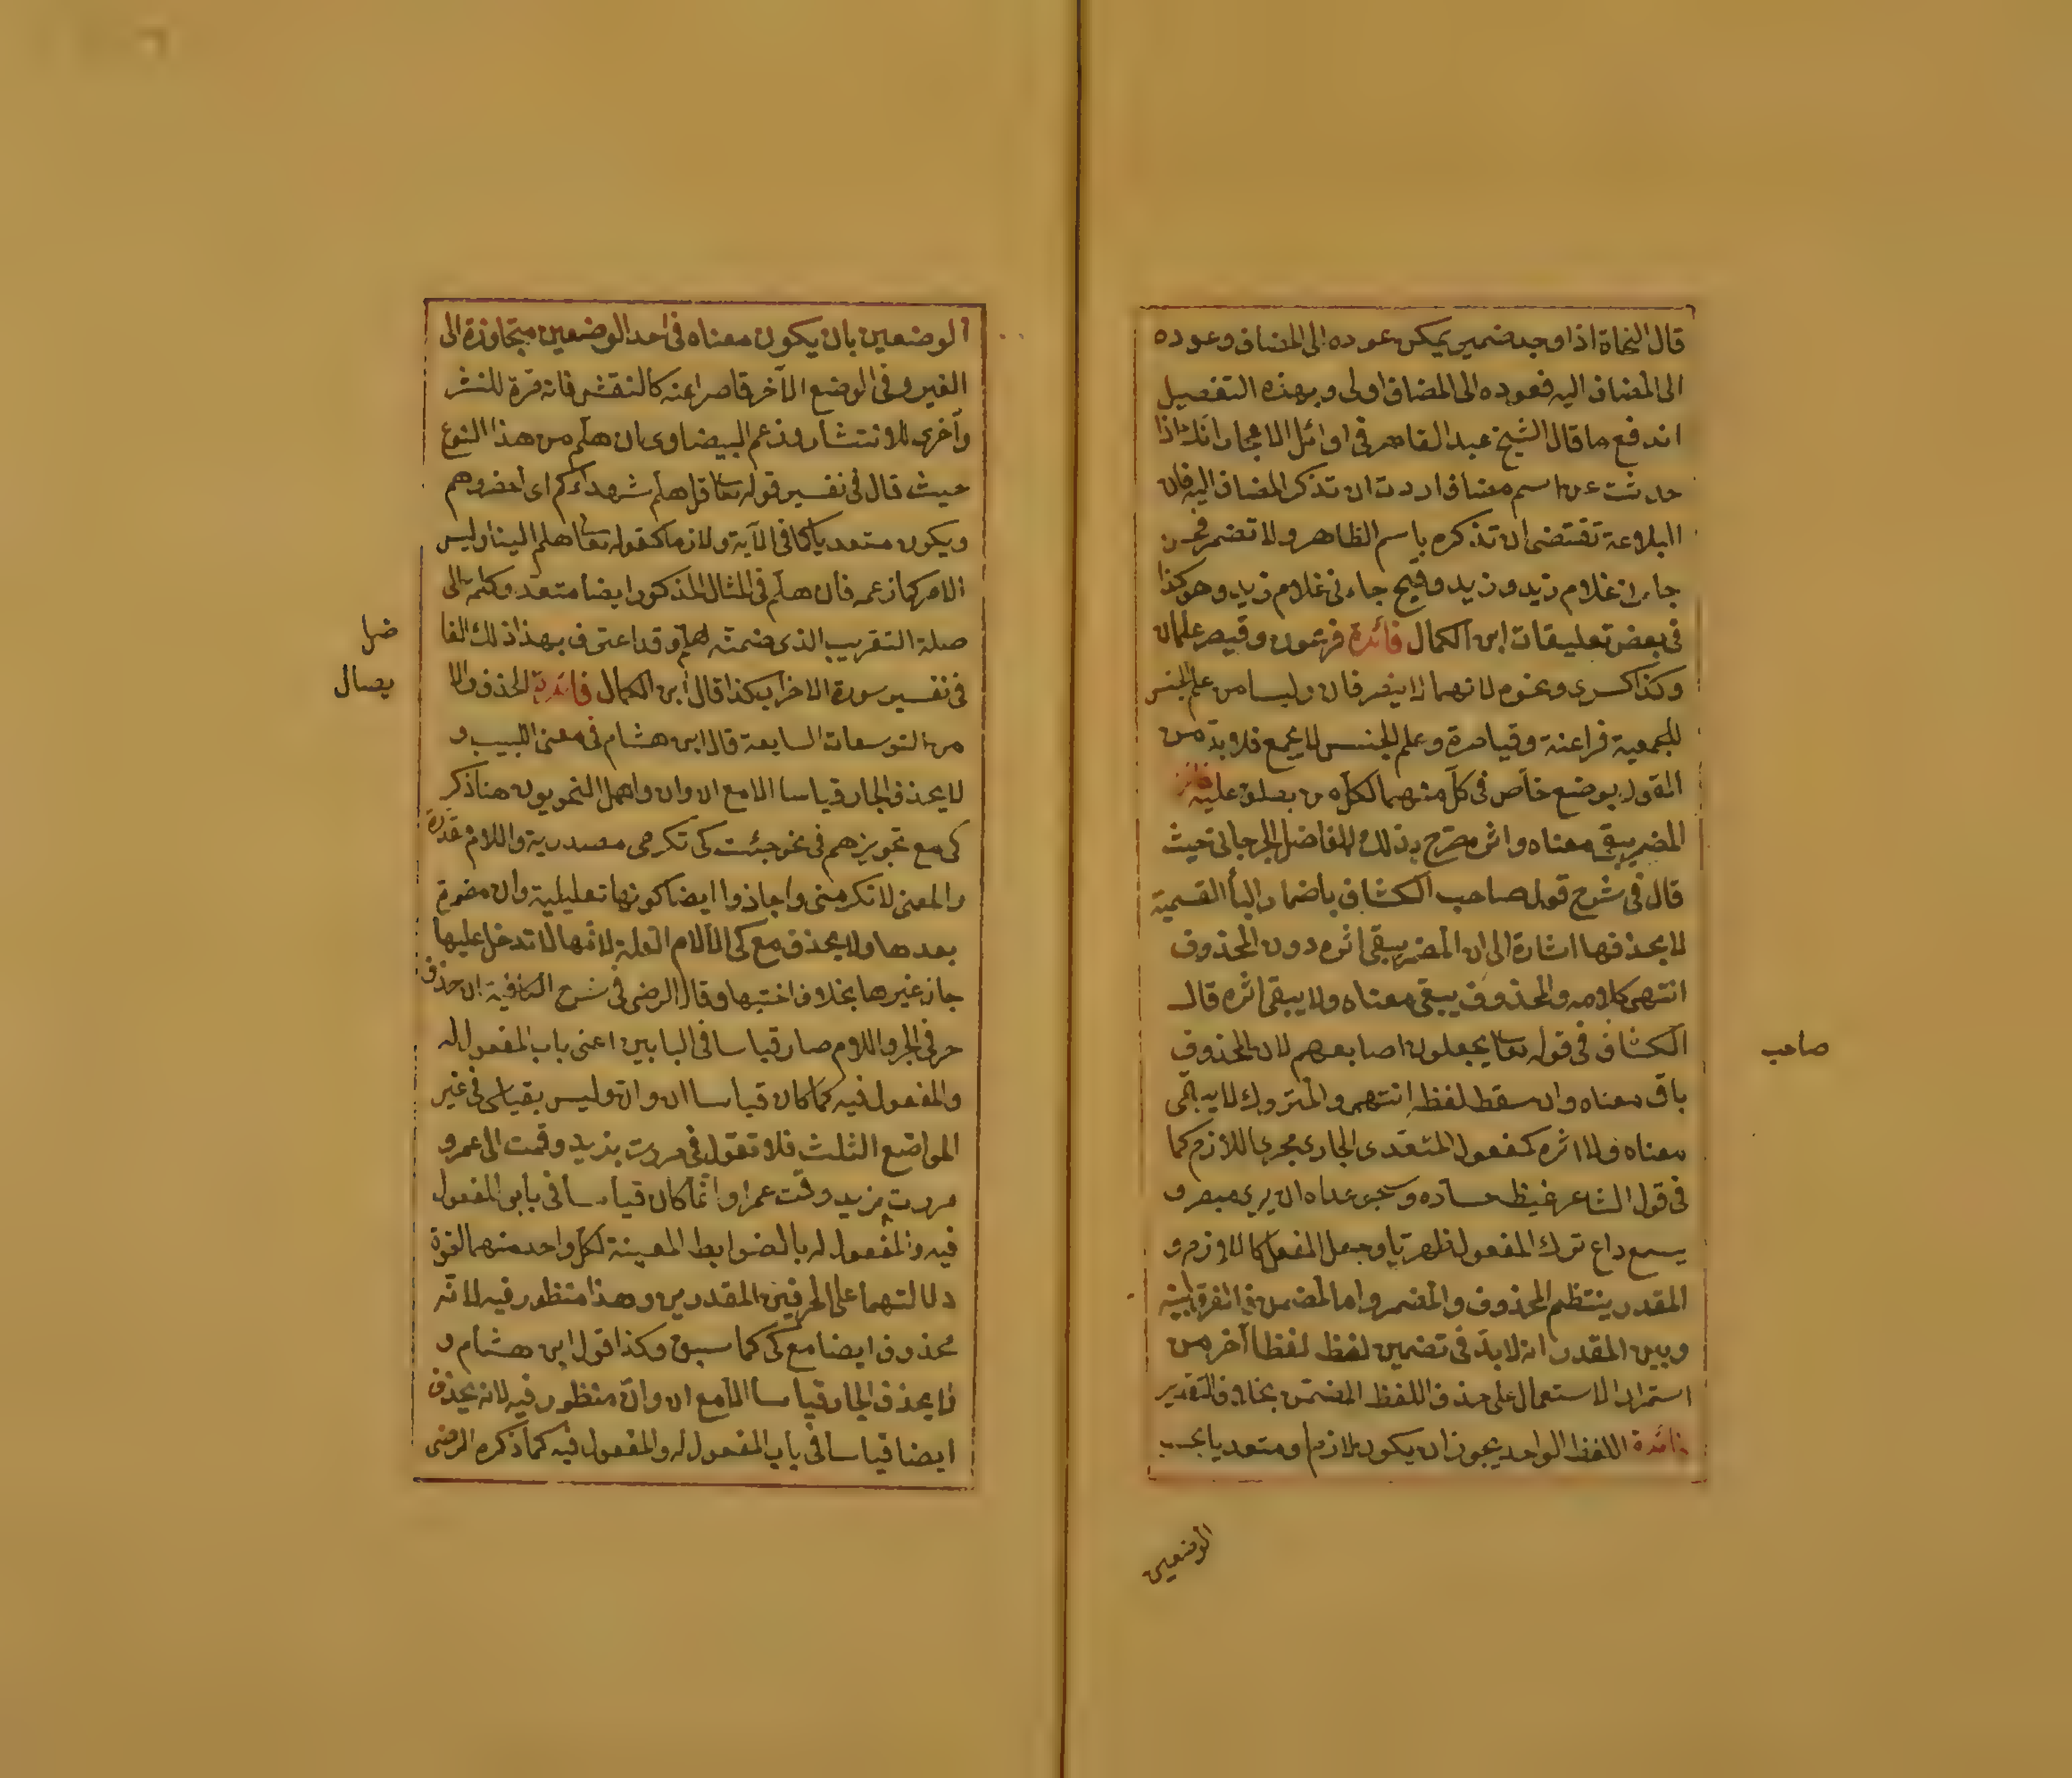 قال النحاة اذا وجد ضمير يمكن عوده الى المضاف وعوده
الى المضاف اليه فعوده الى المضاف اولى وبهذه التفصيل
اندفع ما قال الشيخ عبد القاهر فى اوائل الاعجاز انك اذا
حدثت عن اسم مضاف اردت ان تذكر المضاف اليه فان
البلاغة تقتضى ان تذكره باسم الظاهر ولا تضمر فحسن
جاءنى غلام زيد وزيد وقبيح جاءنى غلام زيد وهو كذا
فى بعض تعليقات ابن الكمال فائدة فرعون وقيصر علمان
وكذا كسرى ونحوه لانهما لا ينصرفان وليسا من علم الجنس
للجمعية فراعنة وقياصرة وعلم الجنس لا يجمع فلا بد من
القول بوضع خاص فى كل منهما لكل من يطلق عليه فائدة
المضمر يبقى معناه واثره صرح بذلك الفاضل الجرجانى حيث
قال فى شرح قول صاحب الكشاف باضمار الباء القسمية
لا بحذفها اشارة الى ان المضمر يبقى اثره دون المحذوف
انتهى كلامه والمحذوف يبقى معناه ولا يبقى اثره قال
صاحب
الكشاف فى قوله تعالى يجعلون اصابعهم لان المحذوف
باق معناه وان سقط لفظه انتهى والمتروك لا يبقى
معناه ولا اثره كمفعول المتعدى الجارى مجرى اللازم كما
فى قول الشاعر غيظ حساده وشجو عداه ان يرى مبصر و
يسمع داع ترك المفعول ظهريا وجعل الفعل كاللازم و
المقدر ينتظم المحذوف والمضمر واما المضمن فالفرق بينه
وبين المقدر انه لا بد فى تضمين لفظ لفظا آخر من
استمرار الاستعمال على حذف اللفظ المضمن بخلاف التقدير
فائدة اللفظ الواحد يجوز ان يكون لازما ومتعديا بحسب
الوضعين
الوضعين بان يكون معناه فى احد الوضعين متجاوزة الى
الغير وفى الوضع الآخر قاصرا عنه كالنقش فانه مرة للنشر
وآخرى للانتشار وزعم البيضاوى ان هلم من هذا النوع
حيث قال فى تفسير قوله تعالى قل هلم شهداءكم اى احضروهم
ويكون متعديا كما فى الآية ولازما كقوله تعالى هلم الينا وليس
الامر كما زعمه فان هلم فى المثال المذكور ايضا متعد وكلمة الى
صلة التقريب الذى ضمنه هلم وقد اعترف بهذا ذلك الفا
ضل
فى تفسير سورة الاحزاب كذا قال ابن الكمال فائدة الحذف والا
يصال
من التوسعات السايعة قال ابن هشام فى مغنى اللبيب و
لا يحذف الجار قياسا الا مع ان وان واهمل النحويون هنا ذكر
كى مع تجويزهم فى نحو جئت كى تكرمنى مصدرية واللام مقدرة
والمعنى لا تكرمنى واجازوا ايضا كونها تعليلية وان مضمرة
بعدها ولا يحذف مع كى الا لام العلة لانها لا تدخل عليها
جار غيرها بخلاف اختيها وقال الرضى فى شرح الكافية ان حذف
حرفى الجر واللام صار قياسا فى البابين اعنى باب المفعول له
والمفعول فيه كما كان قياسا ان وان وليس بقياس فى غير
المواضع الثلث فلا تقول فى مررت بزيد وقمت الى عمرو
مررت زيد وقمت عمرا وانما كان قياسا فى بابى المفعول
فيه والمفعول له بالضوابط المعينة لكل واحد منهما لقوة
دلالتهما على الحرفين المقدرين وهذا منظور فيه لانه
محذوف ايضا مع كى كما سبق وكذا قول ابن هشام و
لا يحذف الجار قياسا الا مع ان وان منظور فيه لانه يحذف
ايضا قياسا فى باب المفعول له والمفعول فيه كما ذكره الرضى